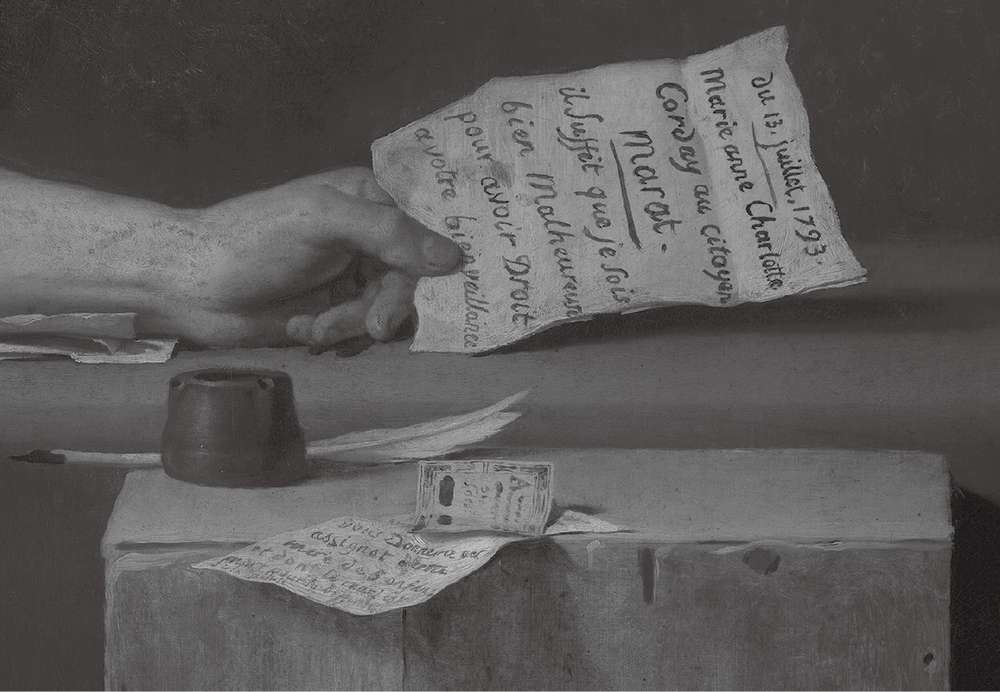 du 13. juillet, 1793.
Marie anne Charlotte
Corday au citoyen
Marat.
il Suffit que je Sois
bien Malheureuse
pour avoir Droit
a votre bienveillance
vous Donnerez cet
assignat
mere de 5 enfans
et dont le mari